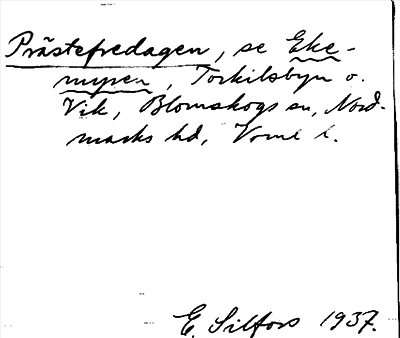 Prästefredagen, se Eke-
myren, Torkilsbyn o.
Vik, Blomskogs sn, Nord-
marks hd, Vrml l.
E. Silfors 1937.